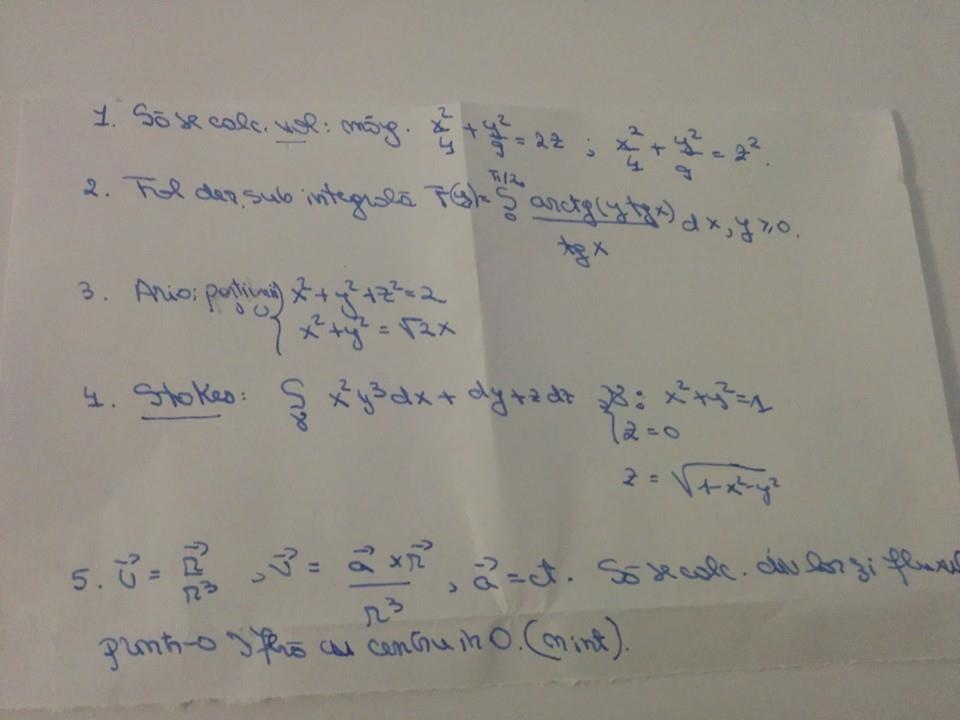 1. Să se calc. vol: mărg. x²/4 + y²/9 = 2z ; x²/4 + y²/9 = z².
2. Fol der. sub integrală F(y)= ∫₀^{π/2} arctg(y tg x)/tg x dx, y ≥ 0.
3. Aria porțiunii { x² + y² + z² = 2
x² + y² = √2x
4. Stokes: ∫_γ x²y³dx + dy + zdz γ: { x² + y² = 1
z = 0
z = √1-x²-y²
5. v⃗ = r⃗/r³ , v⃗ = a⃗ × r⃗/r³ , a⃗ = ct. Să se calc. div lor și fluxul
printr-o sferă cu centru în O. (n int).